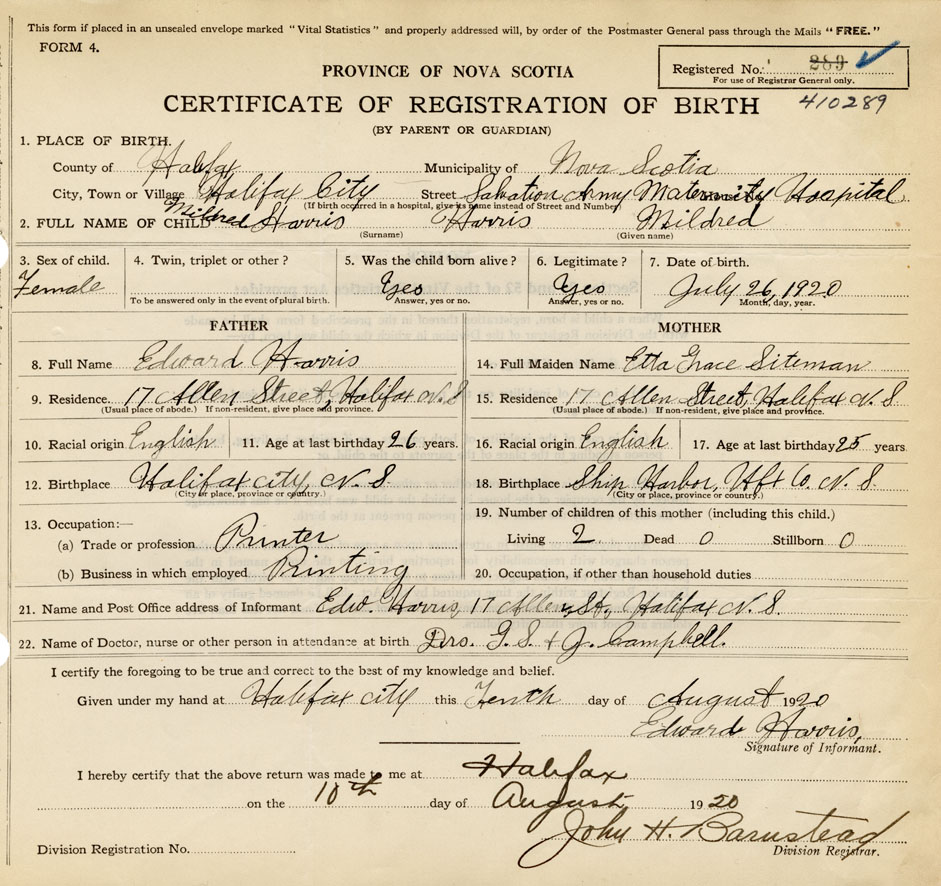 This form if placed in an unsealed envelope marked "Vital Statistics" and properly addressed will, by order of the Postmaster General pass through the Mails "FREE."
FORM 4.
Registered No. 289
For use of Registrar General only.
PROVINCE OF NOVA SCOTIA
CERTIFICATE OF REGISTRATION OF BIRTH 410289
(BY PARENT OR GUARDIAN)
1. PLACE OF BIRTH.
County of Halifax Municipality of Nova Scotia
City, Town or Village Halifax City Street Salvation Army Maternity Hospital
(If birth occurred in a hospital, give its name instead of Street and Number)
2. FULL NAME OF CHILD Mildred Harris Harris Mildred
(Surname) (Given name)
3. Sex of child. 4. Twin, triplet or other? 5. Was the child born alive? 6. Legitimate? 7. Date of birth.
Female Yes Yes July 26, 1920
To be answered only in the event of plural birth. Answer, yes or no. Answer, yes or no. Month, day, year.
FATHER
8. Full Name Edward Harris
9. Residence. 17 Allen Street, Halifax N.S
(Usual place of abode.) If non-resident, give place and province.
10. Racial origin English 11. Age at last birthday 26 years.
12. Birthplace Halifax city, N.S.
(City or place, province or country.)
13. Occupation:—
(a) Trade or profession Printer
(b) Business in which employed Printing
MOTHER
14. Full Maiden Name Etta Grace Siteman
15. Residence 17 Allen Street, Halifax N.S.
(Usual place of abode.) If non-resident, give place and province.
16. Racial origin English 17. Age at last birthday 25 years
18. Birthplace Ship Harbor, Hfx Co. N.S.
(City or place, province or country.)
19. Number of children of this mother (including this child.)
Living 2 Dead 0 Stillborn 0
20. Occupation, if other than household duties
21. Name and Post Office address of Informant Edw. Harris, 17 Allen St., Halifax N.S.
22. Name of Doctor, nurse or other person in attendance at birth Drs. G.S. + J. Campbell.
I certify the foregoing to be true and correct to the best of my knowledge and belief.
Given under my hand at Halifax city this Tenth day of August 1920
Edward Harris,
Signature of Informant.
I hereby certify that the above return was made to me at Halifax
on the 10th day of August 1920
John H. Barnstead
Division Registration No. Division Registrar.